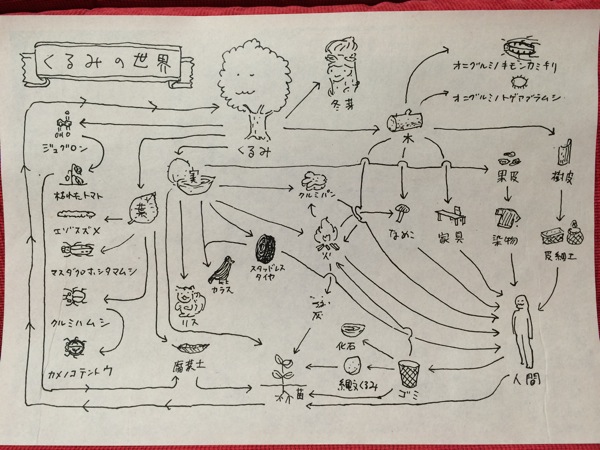 くるみの世界
くるみ
冬芽
オニグルミノキモンカミキリ
オニグルミノトゲアブラムシ
木
ジュグロン
枯れたトマト
葉
エゾスズメ
マスダクロホシタマムシ
クルミハムシ
カメノコテントウ
実
クルミパン
火
灰
なめこ
家具
果皮
染物
樹皮
皮細工
カラス
スタッドレス
タイヤ
リス
腐葉土
苗
化石
縄文くるみ
ゴミ
人間